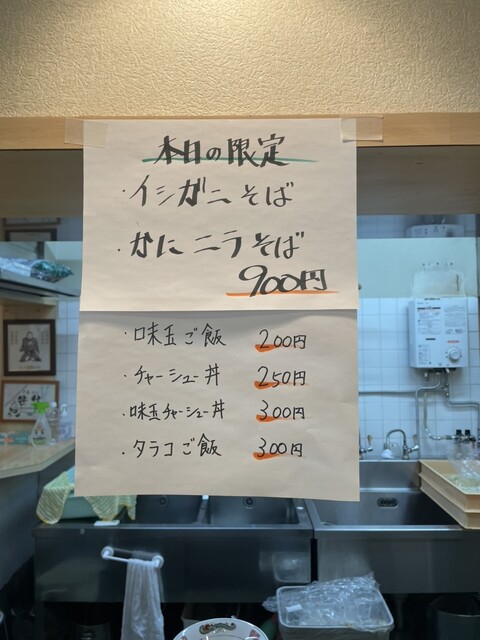 本日の限定
・イシガニそば
・かにニラそば
900円
・味玉ご飯 200円
・チャーシュー丼 250円
・味玉チャーシュー丼 300円
・タラコご飯 300円